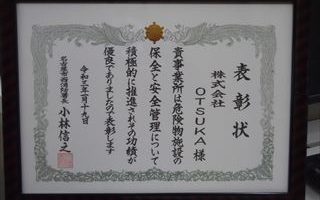 表彰状
株式会社
OTSUKA 様
貴事業所は危険物施設の
保全と安全管理について
積極的に推進されその功績が
優良でありましたので表彰します
令和三年一月十九日
名古屋市西消防署長
小林信之